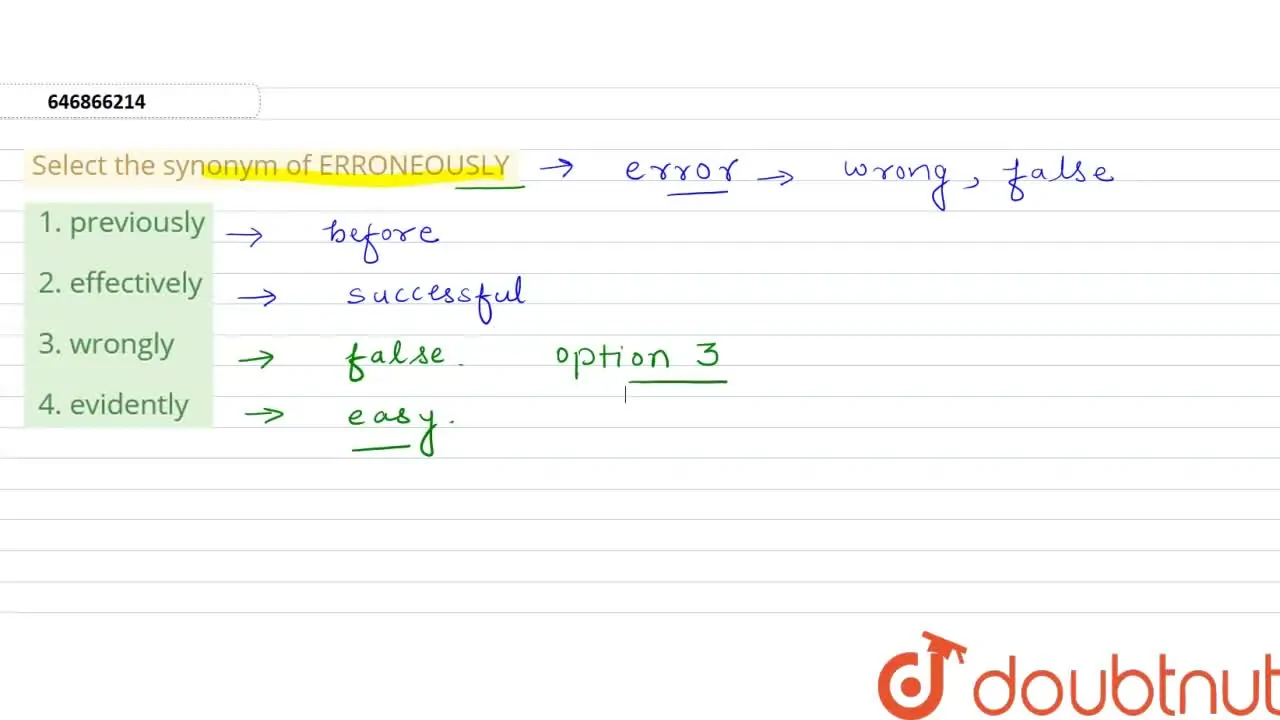 646866214
Select the synonym of ERRONEOUSLY → error → wrong, false
1. previously → before
2. effectively → successful
3. wrongly → false. option 3
4. evidently → easy.
doubtnut